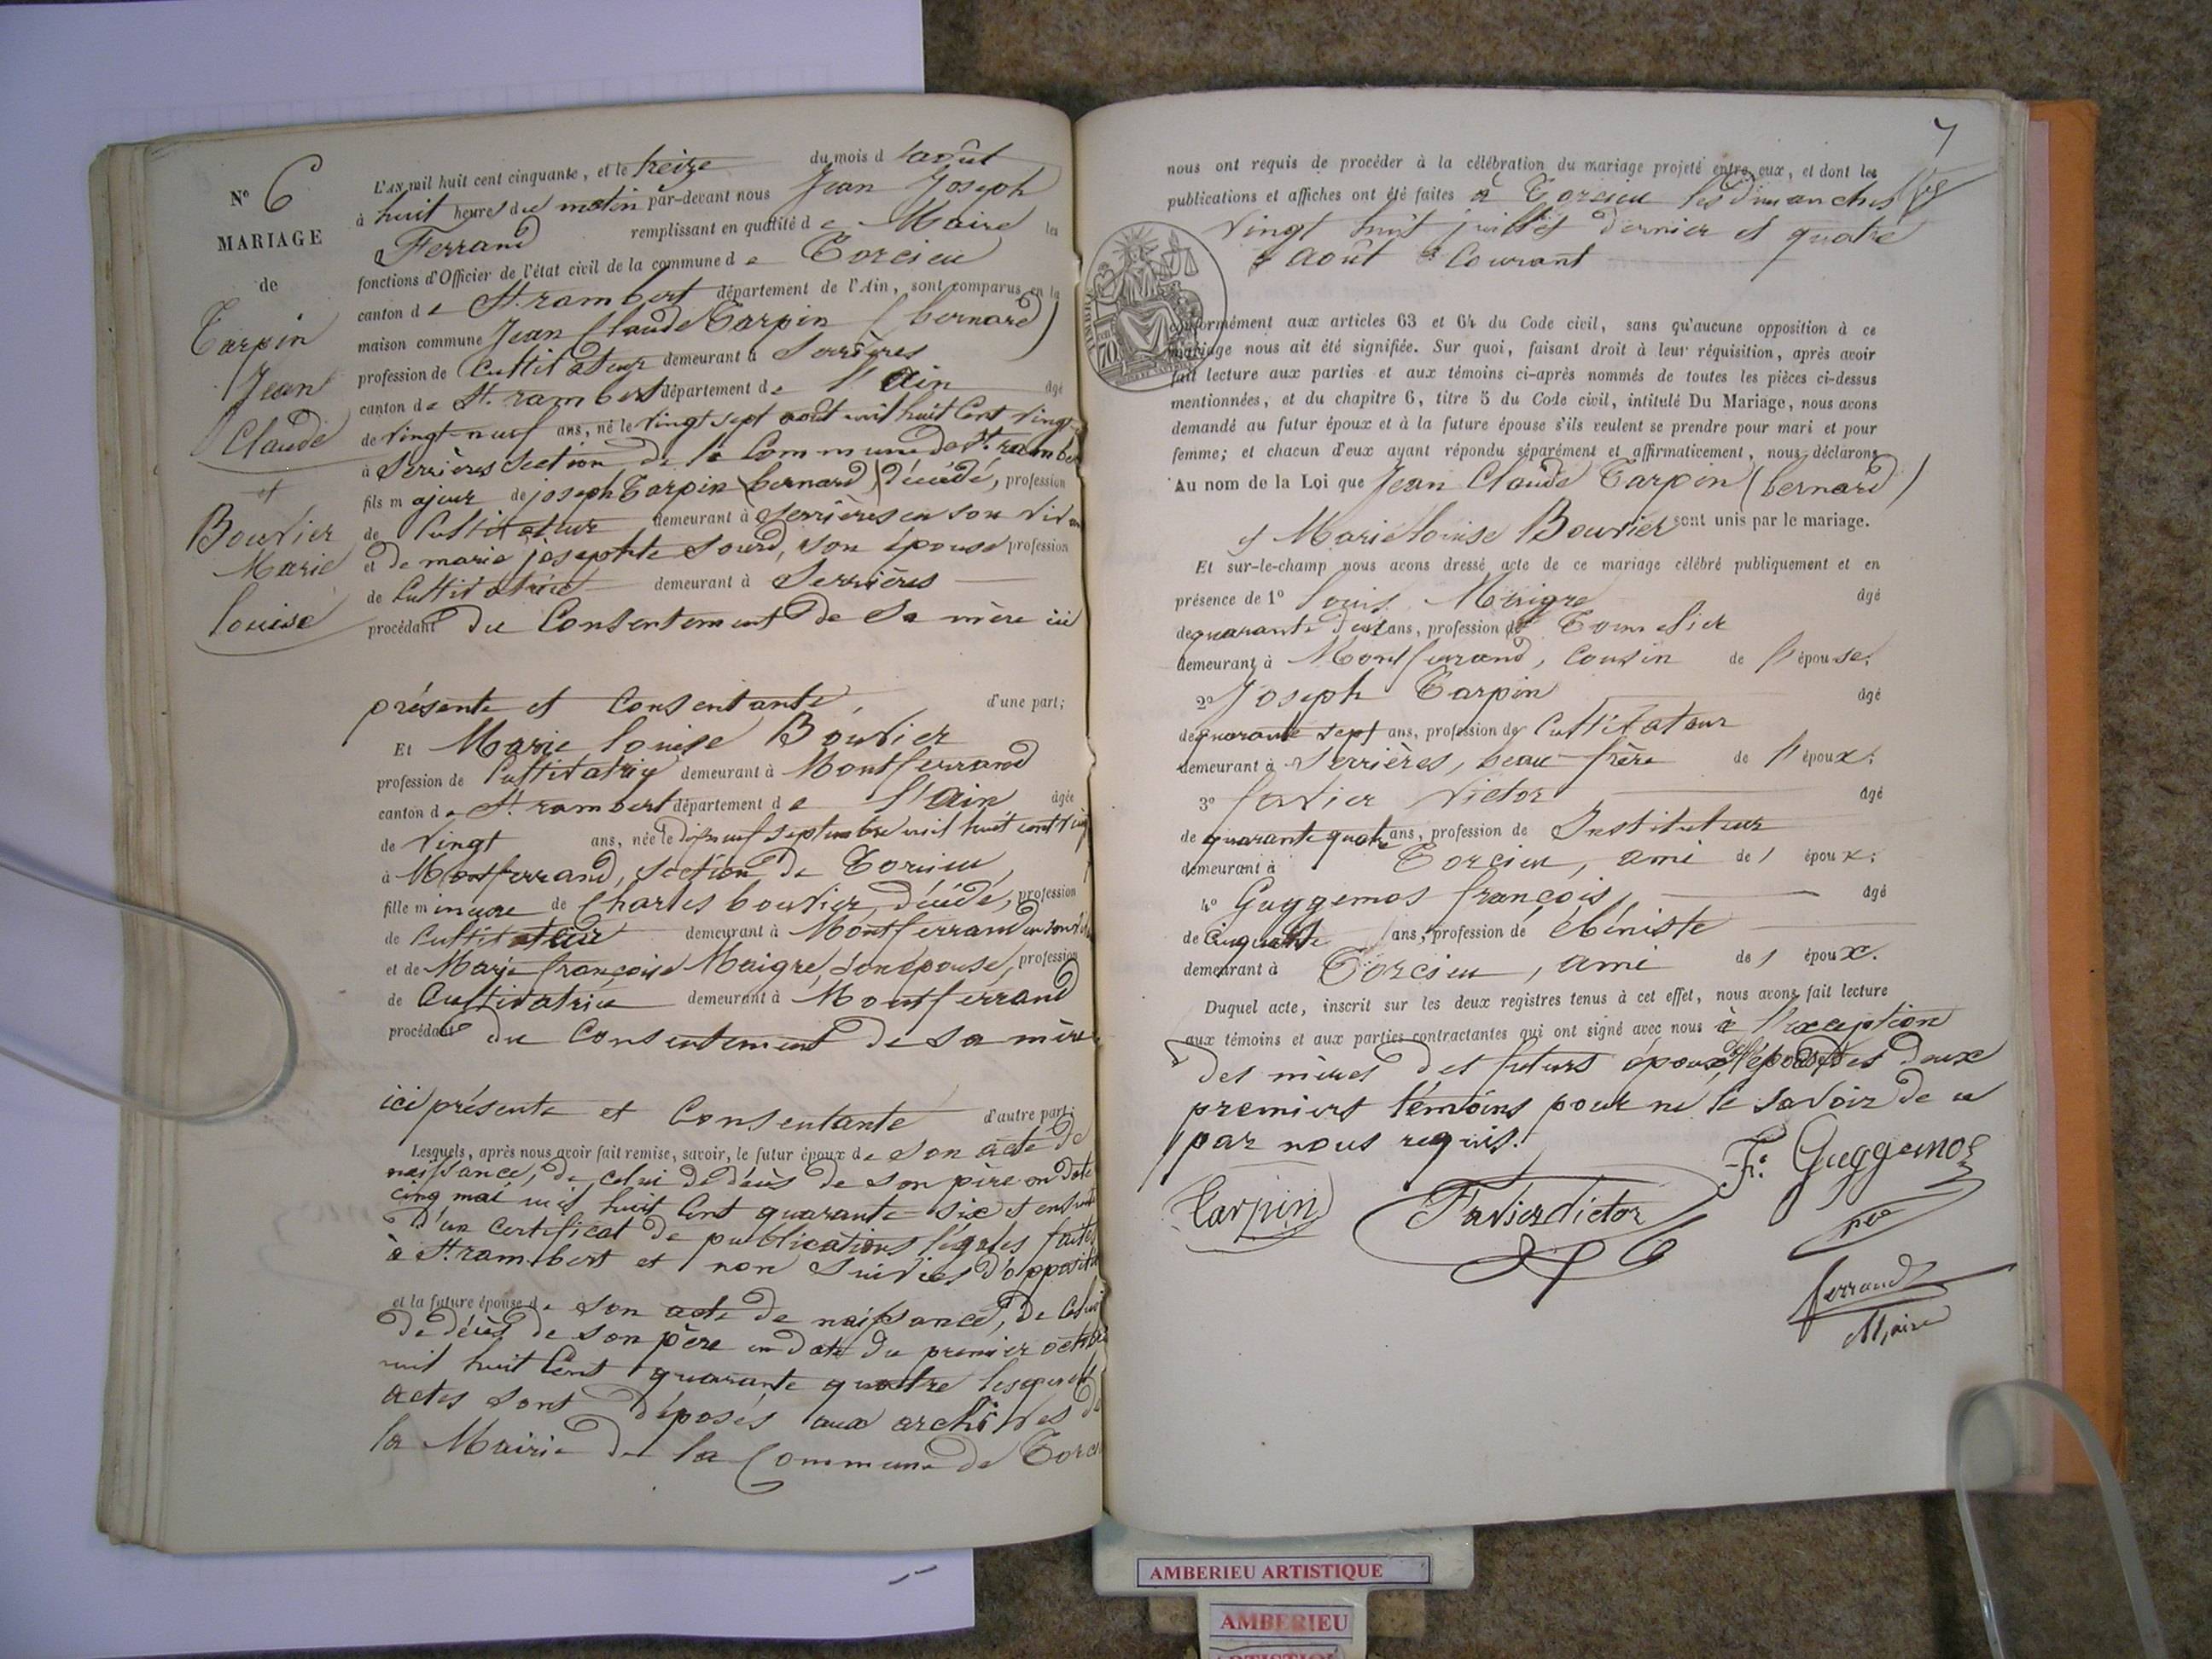 N° 6
MARIAGE
de
Tarpin
Jean
Claude
et
Bouvier
Marie
louise
L'AN mil huit cent cinquante, et le treize du mois d'août
à huit heures du matin par-devant nous Jean Joseph
Ferrand remplissant en qualité de Maire les
fonctions d'Officier de l'état civil de la commune de Torcieu
canton de St. rambert département de l'Ain, sont comparus en la
maison commune Jean Claude Tarpin (bernard)
profession de Cultivateur demeurant à Serrières
canton de St. rambert département de l'Ain âgé
de vingt-neuf ans, né le vingt sept août mil huit cent vingt
à Serrières section de la Commune de St. rambert
fils majeur de joseph Tarpin (bernard) décédé, profession
de Cultivateur demeurant à Serrières en son vivant
et de marie josephte sourd, son épouse profession
de Cultivatrice demeurant à Serrières
procédant du Consentement de sa mère ici
présente et Consentante, d'une part;
Et Marie louise Bouvier
profession de Cultivatrice demeurant à Montferrand
canton de St. rambert département de l'Ain âgée
de vingt ans, née le dix neuf septembre mil huit cent
à Montferrand, section de Torcieu,
fille mineure de Charles bouvier, décédé, profession
de Cultivateur demeurant à Montferrand en son
et de Marie françoise Maigre, son épouse, profession
de Cultivatrice demeurant à Montferrand
procédant du Consentement de sa mère
ici présente et Consentante d'autre part;
Lesquels, après nous avoir fait remise, savoir, le futur époux de son acte de
naissance, de celui de décès de son père en date
cinq mai mil huit cent quarante-six et ensuite
d'un certificat de publications légales faites
à St. rambert et non suivies d'opposition
et la future épouse de son acte de naissance, de celui
de décès de son père en date du premier octobre
mil huit cent quarante quatre lesquels
actes sont déposés aux archives de
la Mairie de la Commune de Torcieu
7
nous ont requis de procéder à la célébration du mariage projeté entre eux, et dont les
publications et affiches ont été faites à Torcieu les dimanches
vingt huit juillet dernier et quatre
août Courant
conformément aux articles 63 et 64 du Code civil, sans qu'aucune opposition à ce
mariage nous ait été signifiée. Sur quoi, faisant droit à leur réquisition, après avoir
fait lecture aux parties et aux témoins ci-après nommés de toutes les pièces ci-dessus
mentionnées, et du chapitre 6, titre 5 du Code civil, intitulé Du Mariage, nous avons
demandé au futur époux et à la future épouse s'ils veulent se prendre pour mari et pour
femme; et chacun d'eux ayant répondu séparément et affirmativement, nous déclarons
Au nom de la Loi que Jean Claude Tarpin (bernard)
et Marie louise Bouvier sont unis par le mariage.
Et sur-le-champ nous avons dressé acte de ce mariage célébré publiquement et en
présence de 1° louis Maigre âgé
de quarante deux ans, profession de Tonnelier
demeurant à Montferrand, cousin de l'épouse;
2° Joseph Tarpin âgé
de quarante sept ans, profession de Cultivateur
demeurant à Serrières, beau-frère de l'époux;
3° favier victor âgé
de quarante quatre ans, profession de Instituteur
demeurant à Torcieu, ami de l'époux;
4° Guggemos françois, âgé
de cinquante ans, profession de ébéniste
demeurant à Torcieu, ami de l'époux.
Duquel acte, inscrit sur les deux registres tenus à cet effet, nous avons fait lecture
aux témoins et aux parties contractantes qui ont signé avec nous à l'exception
des mères des futurs époux, de l'épouse, des deux
premiers témoins pour ne le savoir de ce
par nous requis.
Tarpin
Favier Victor
F. Guggemos
ferrand
Maire
AMBERIEU ARTISTIQUE
AMBERIEU
ARTISTIQUE